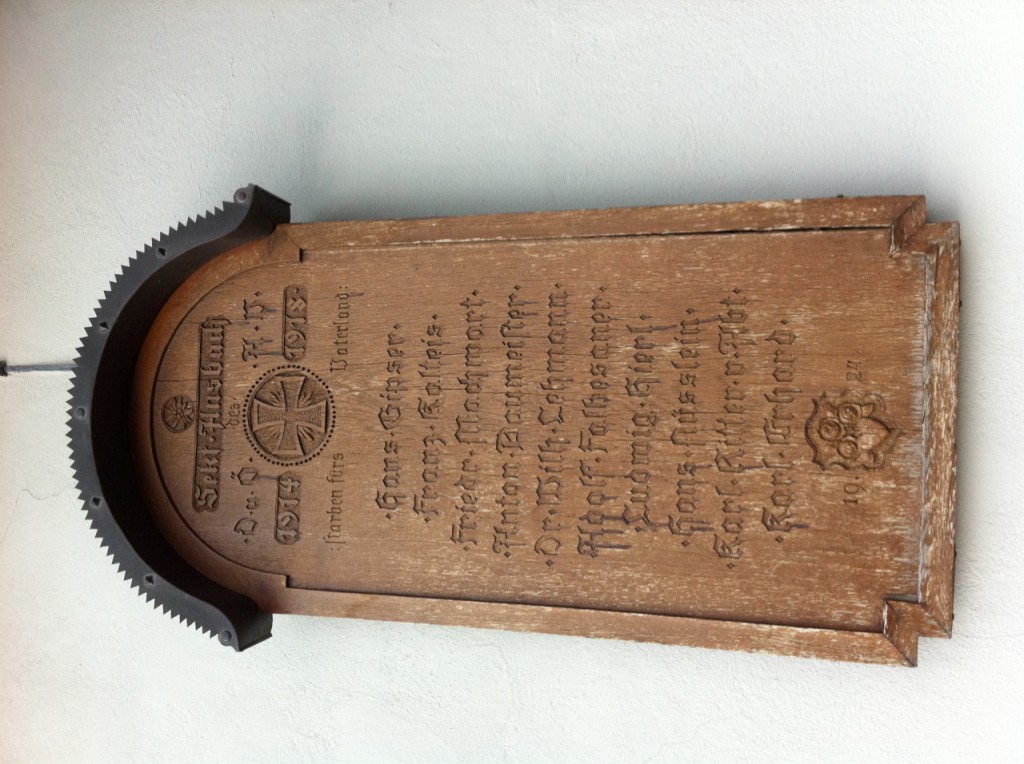 Sekt·Ansbach
des
·D·u·Ö· ·A·V·
1914 1918
:starben fürs Vaterland:
·Hans·Gipser·
·Franz·Kalteis·
·Frieder·Machwart·
·Anton·Daumeister·
·Dr·Wilh·Lehmann·
·Adolf·Falbesaner·
·Ludwig·Hierl·
·Hans·Nüsslein·
·Karl·Ritter·v·Abt·
·Karl·Erhard·
19 24